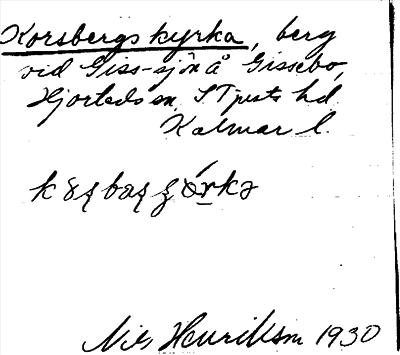 Korsbergs kyrka, berg
vid Giss-sjön å Gissebo,
Hjorteds sn, S Tjusts hd
Kalmar l.
Nils Henrikson 1930